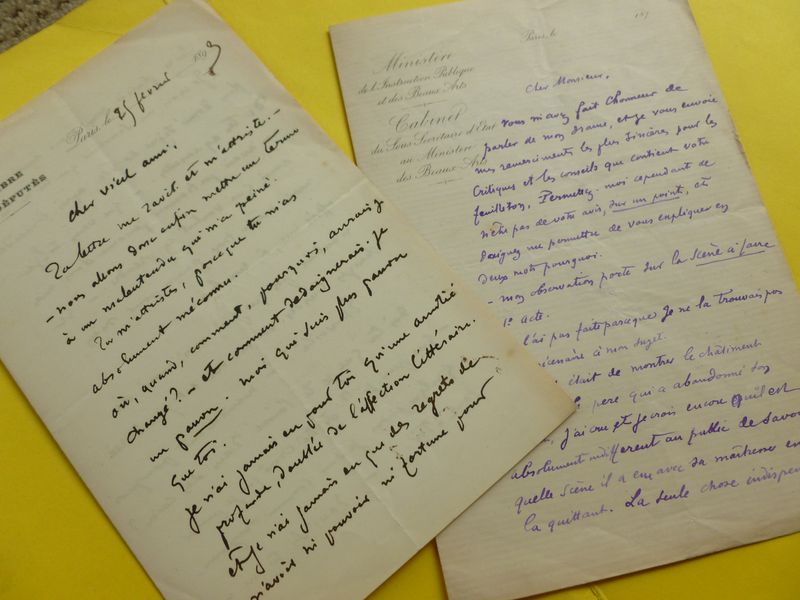 BRE
DÉPUTÉS
Paris, le 25 février 1893
cher vieil ami,
Ta lettre me ravit et m'attriste. -
- nous allons donc enfin mettre un terme
à un malentendu qui m'a peiné.
Tu m'attristes, parceque tu m'as
absolument méconnu.
où, quand, comment, pourquoi, aurais-je
changé? - et comment dédaignerais-je
un gamin. moi qui suis plus gamin
que toi.
Je n'ai jamais eu pour toi qu'une amitié
profonde, doublée de l'affection littéraire.
et je n'ai jamais eu que des regrets de
n'avoir ni pouvoir ni fortune pour
Ministère
de l'Instruction Publique
et des Beaux Arts
Cabinet
du Sous Secrétaire d'Etat
au Ministère
des Beaux Arts
Paris, le 189
Cher Monsieur,
vous m'avez fait l'honneur de
parler de mon drame, et je vous envoie
mes remerciments les plus sincères pour les
critiques et les conseils que contient votre
feuilleton. Permettez-moi cependant de
n'être pas de votre avis, sur un point, et
daignez me permettre de vous expliquer en
deux mots pourquoi.
- mon observation porte sur la scène à faire
1er acte.
l'ai pas faite parceque je ne la trouvais pas
nécessaire à mon sujet.
était de montrer le châtiment
père qui a abandonné son
J'ai cru et je crois encore qu'il est
absolument indifférent au public de savoir
quelle scène il a eue avec sa maîtresse en
la quittant. La seule chose indispen